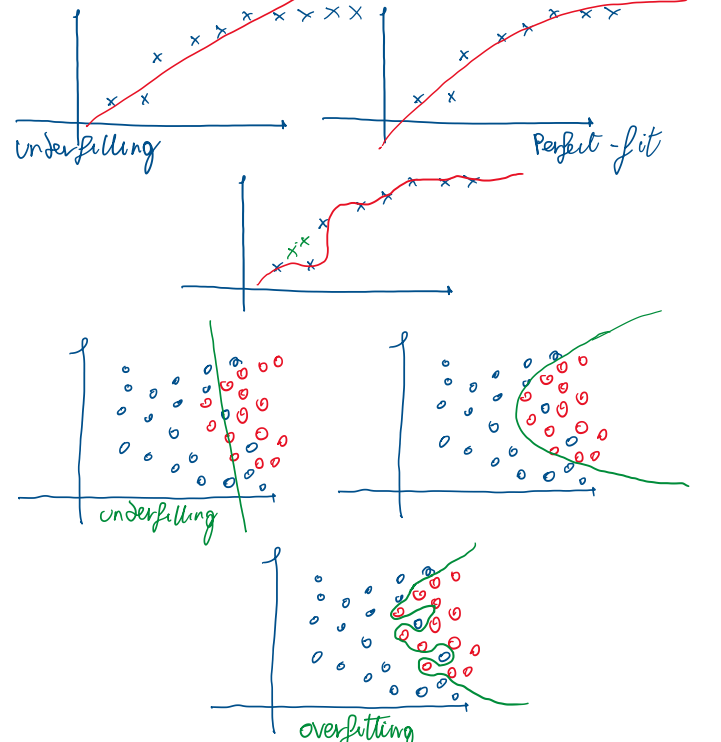 underfilling
Perfect-fit
underfilling
overfitting